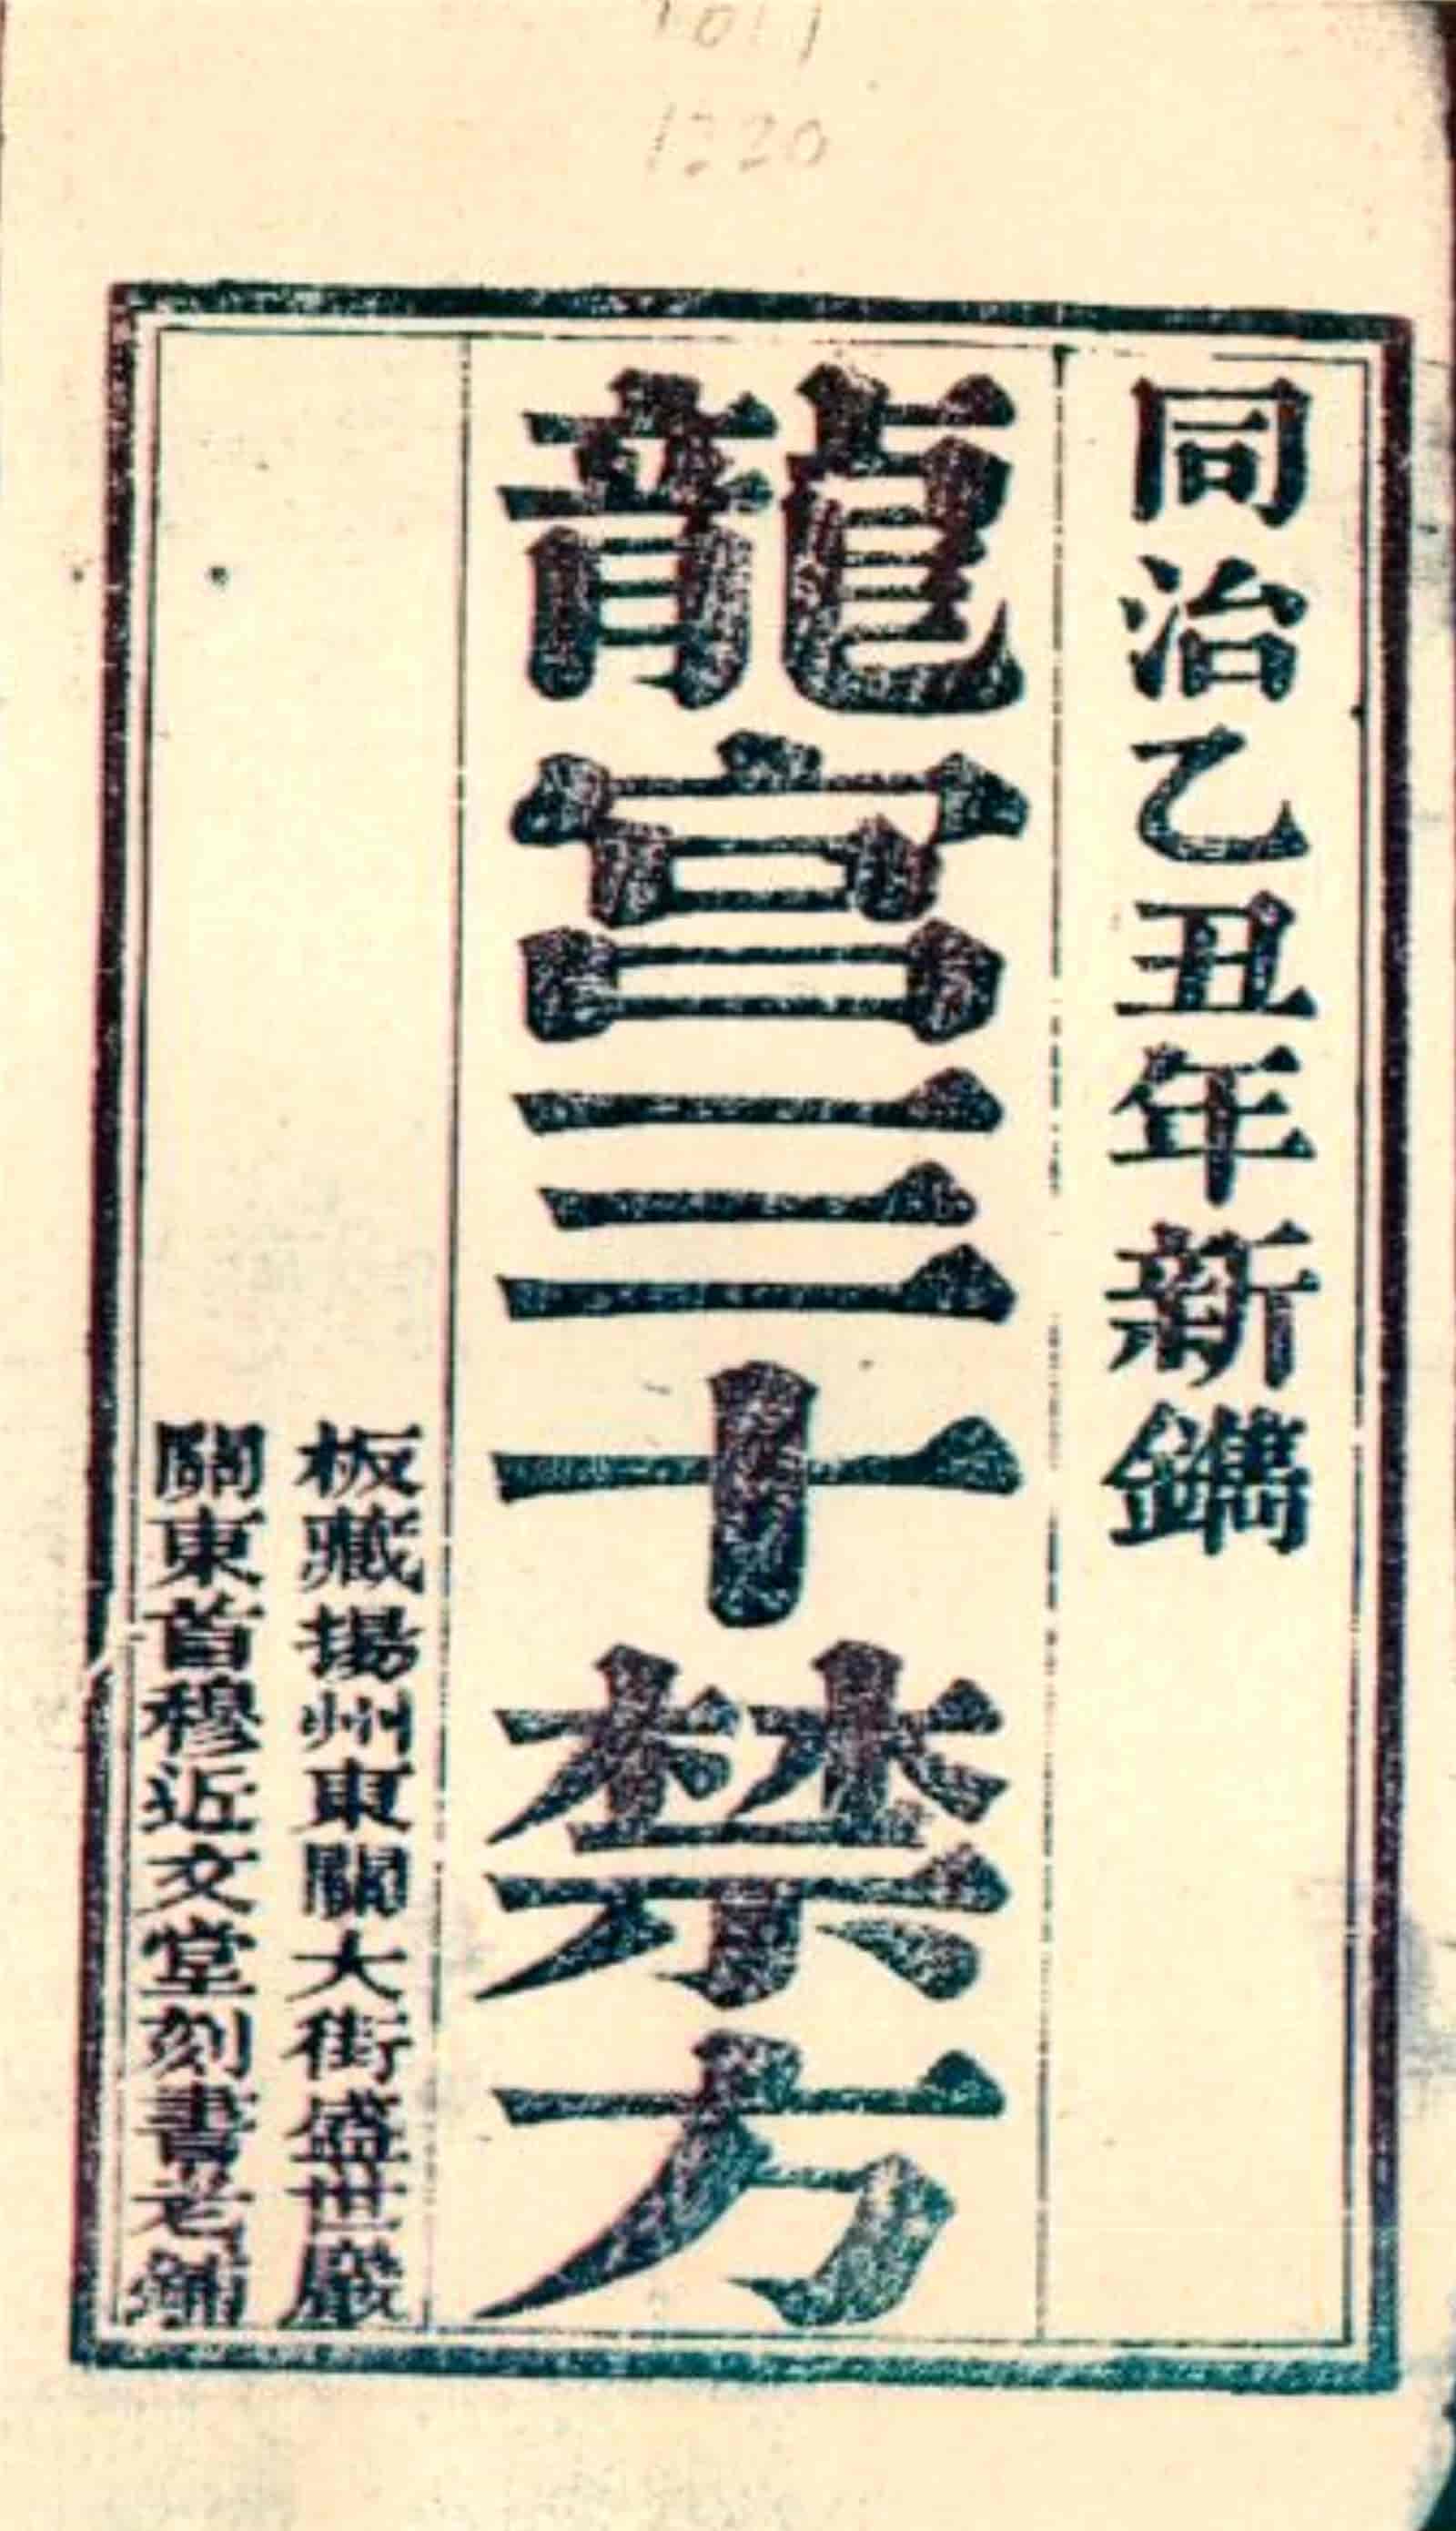 同治乙丑年新鐫
龍宮三十禁方
板藏揚州東關大街盛世嚴
關東首穆近文堂刻書老鋪